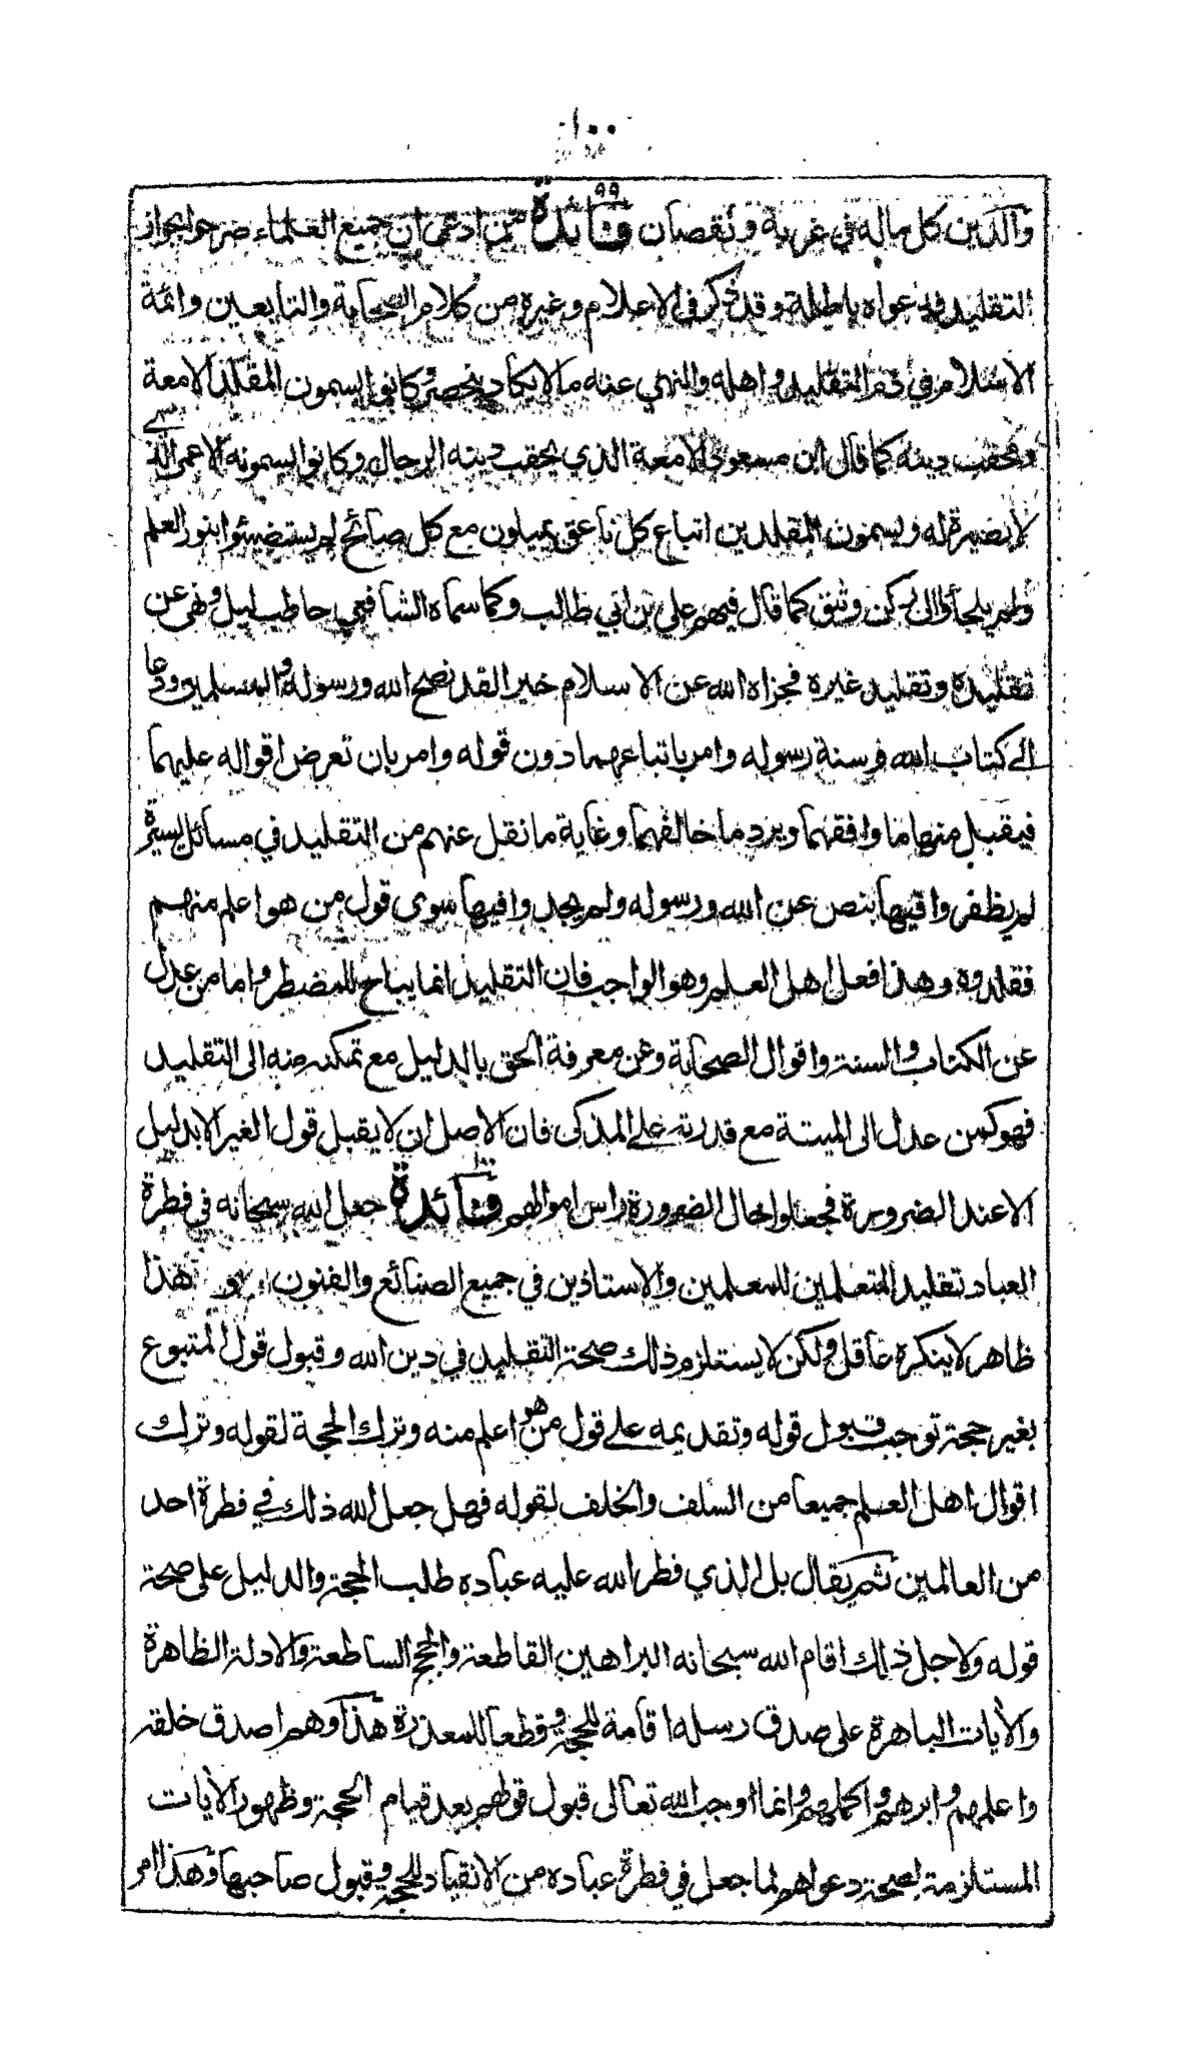 ١٠٠
والدين كل ماله في غربة ونقصان ٩٩ فائدة من ادعى ان جميع العلماء صرحوا بجواز
التقليد فدعواه باطلة وقد ذكر في الاعلام وغيره من كلام الصحابة والتابعين وائمة
الاسلام في ذم التقليد واهله والنهي عنه ما لا يكاد ينحصر وكانوا يسمون المقلد الامعة
ومحقب دينه كما قال ابن مسعود الامعة الذي يحقب دينه الرجال وكانوا يسمونه الاعمى الذي
لا بصيرة له ويسمون المقلدين اتباع كل ناعق يميلون مع كل صائح لم يستضيئوا بنور العلم
ولم يلجأوا الى ركن وثيق كما قال فيهم علي بن ابي طالب وكما سماه الشافعي حاطب ليل ونهى عن
تقليده وتقليد غيره فجزاه الله عن الاسلام خيرا لقد نصح الله ورسوله والمسلمين ودعا
الى كتاب الله وسنة رسوله وامر باتباعهما دون قوله وامر بان تعرض اقواله عليهما
فيقبل منها ما وافقهما ويرد ما خالفهما وغاية ما نقل عنهم من التقليد في مسائل يسيرة
لم يظفروا فيها بنص عن الله ورسوله ولم يجدوا فيها سوى قول من هو اعلم منهم
فقلدوه وهذا فعل اهل العلم وهو الواجب فان التقليد انما يباح للمضطر واما من عدل
عن الكتاب والسنة واقوال الصحابة وعن معرفة الحق بالدليل مع تمكنه منه الى التقليد
فهو كمن عدل الى الميتة مع قدرته على المذكى فان الاصل ان لا يقبل قول الغير الا بدليل
الا عند الضرورة فجعلوا حال الضرورة راس اموالهم ١٠٠ فائدة جعل الله سبحانه في فطرة
العباد تقليد المتعلمين للمعلمين والاستاذين في جميع الصنائع والفنون و هذا
ظاهر لا ينكره عاقل ولكن لا يستلزم ذلك صحة التقليد في دين الله وقبول قول المتبوع
بغير حجة توجب قبول قوله وتقديمه على قول من هو اعلم منه وترك الحجة لقوله وترك
اقوال اهل العلم جميعا من السلف والخلف لقوله فهل جعل الله ذلك في فطرة احد
من العالمين ثم يقال بل الذي فطر الله عليه عباده طلب الحجة والدليل على صحة
قوله ولاجل ذلك اقام الله سبحانه البراهين القاطعة والحجج الساطعة والادلة الظاهرة
والآيات الباهرة على صدق رسله اقامة للحجة وقطعا للمعذرة هذا وهم اصدق خلقه
واعلمهم وابرهم واكملهم وانما اوجب الله تعالى قبول قولهم بعد قيام الحجة وظهور الآيات
المستلزمة لصحة دعواهم لما جعل في فطرة عباده من الانقياد للحجة وقبول صاحبها وهذا امر